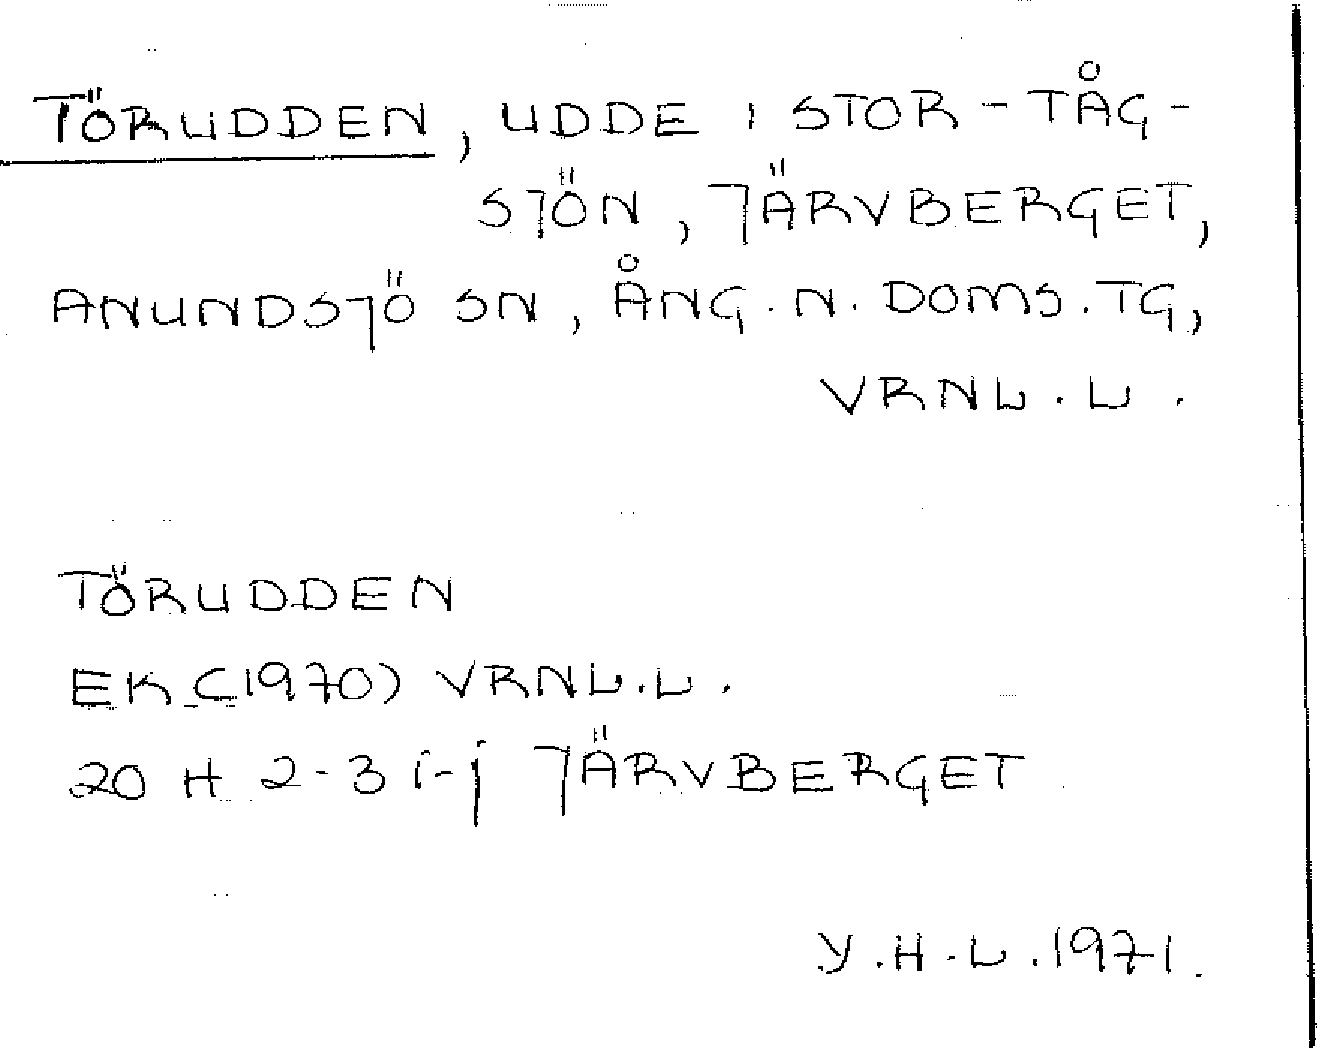 TÖRUDDEN, UDDE I STOR-TÅG-
SJÖN, JÄRVBERGET,
ANUNDSJÖ SN, ÅNG. N. DOMS. TG,
VRNL. L.
TÖRUDDEN
EK (1970) VRNL. L.
20 H 2-3 i-j JÄRVBERGET
Y.H.L. 1971.